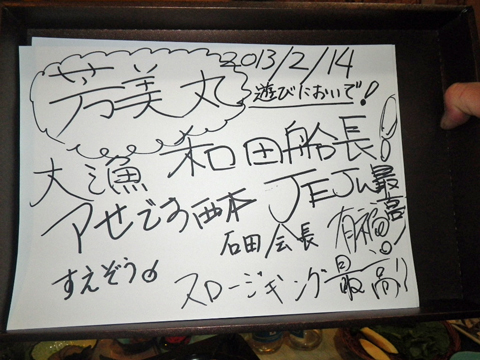 芳美丸
2013/2/14
遊びにおいで!
大漁 和田船長!
アせです西本
JEJU最高!
石田会長
すえぞう
スロージギング最高!!